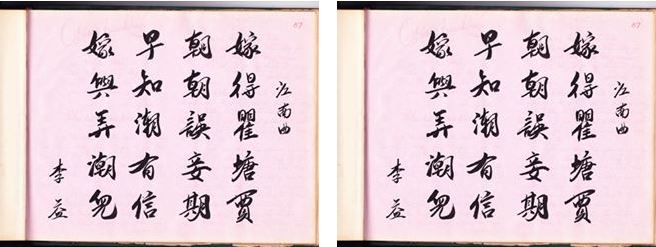 67
江南曲
嫁得瞿塘賈
朝朝誤妾期
早知潮有信
嫁與弄潮兒
李益
67
江南曲
嫁得瞿塘賈
朝朝誤妾期
早知潮有信
嫁與弄潮兒
李益